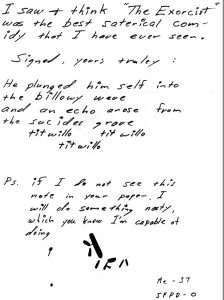 I saw + think "The Exorcist"
was the best saterical com-
idy that I have ever seen.
Signed, yours truley:
He plunged him self into
the billowy wave
and an echo arose from
the sucides grave
titwillo titwillo
titwillo
Ps. if I do not see this
note in your paper, I
will do something nasty,
which you know I'm capable of
doing
Me - 37
SFPD - 0